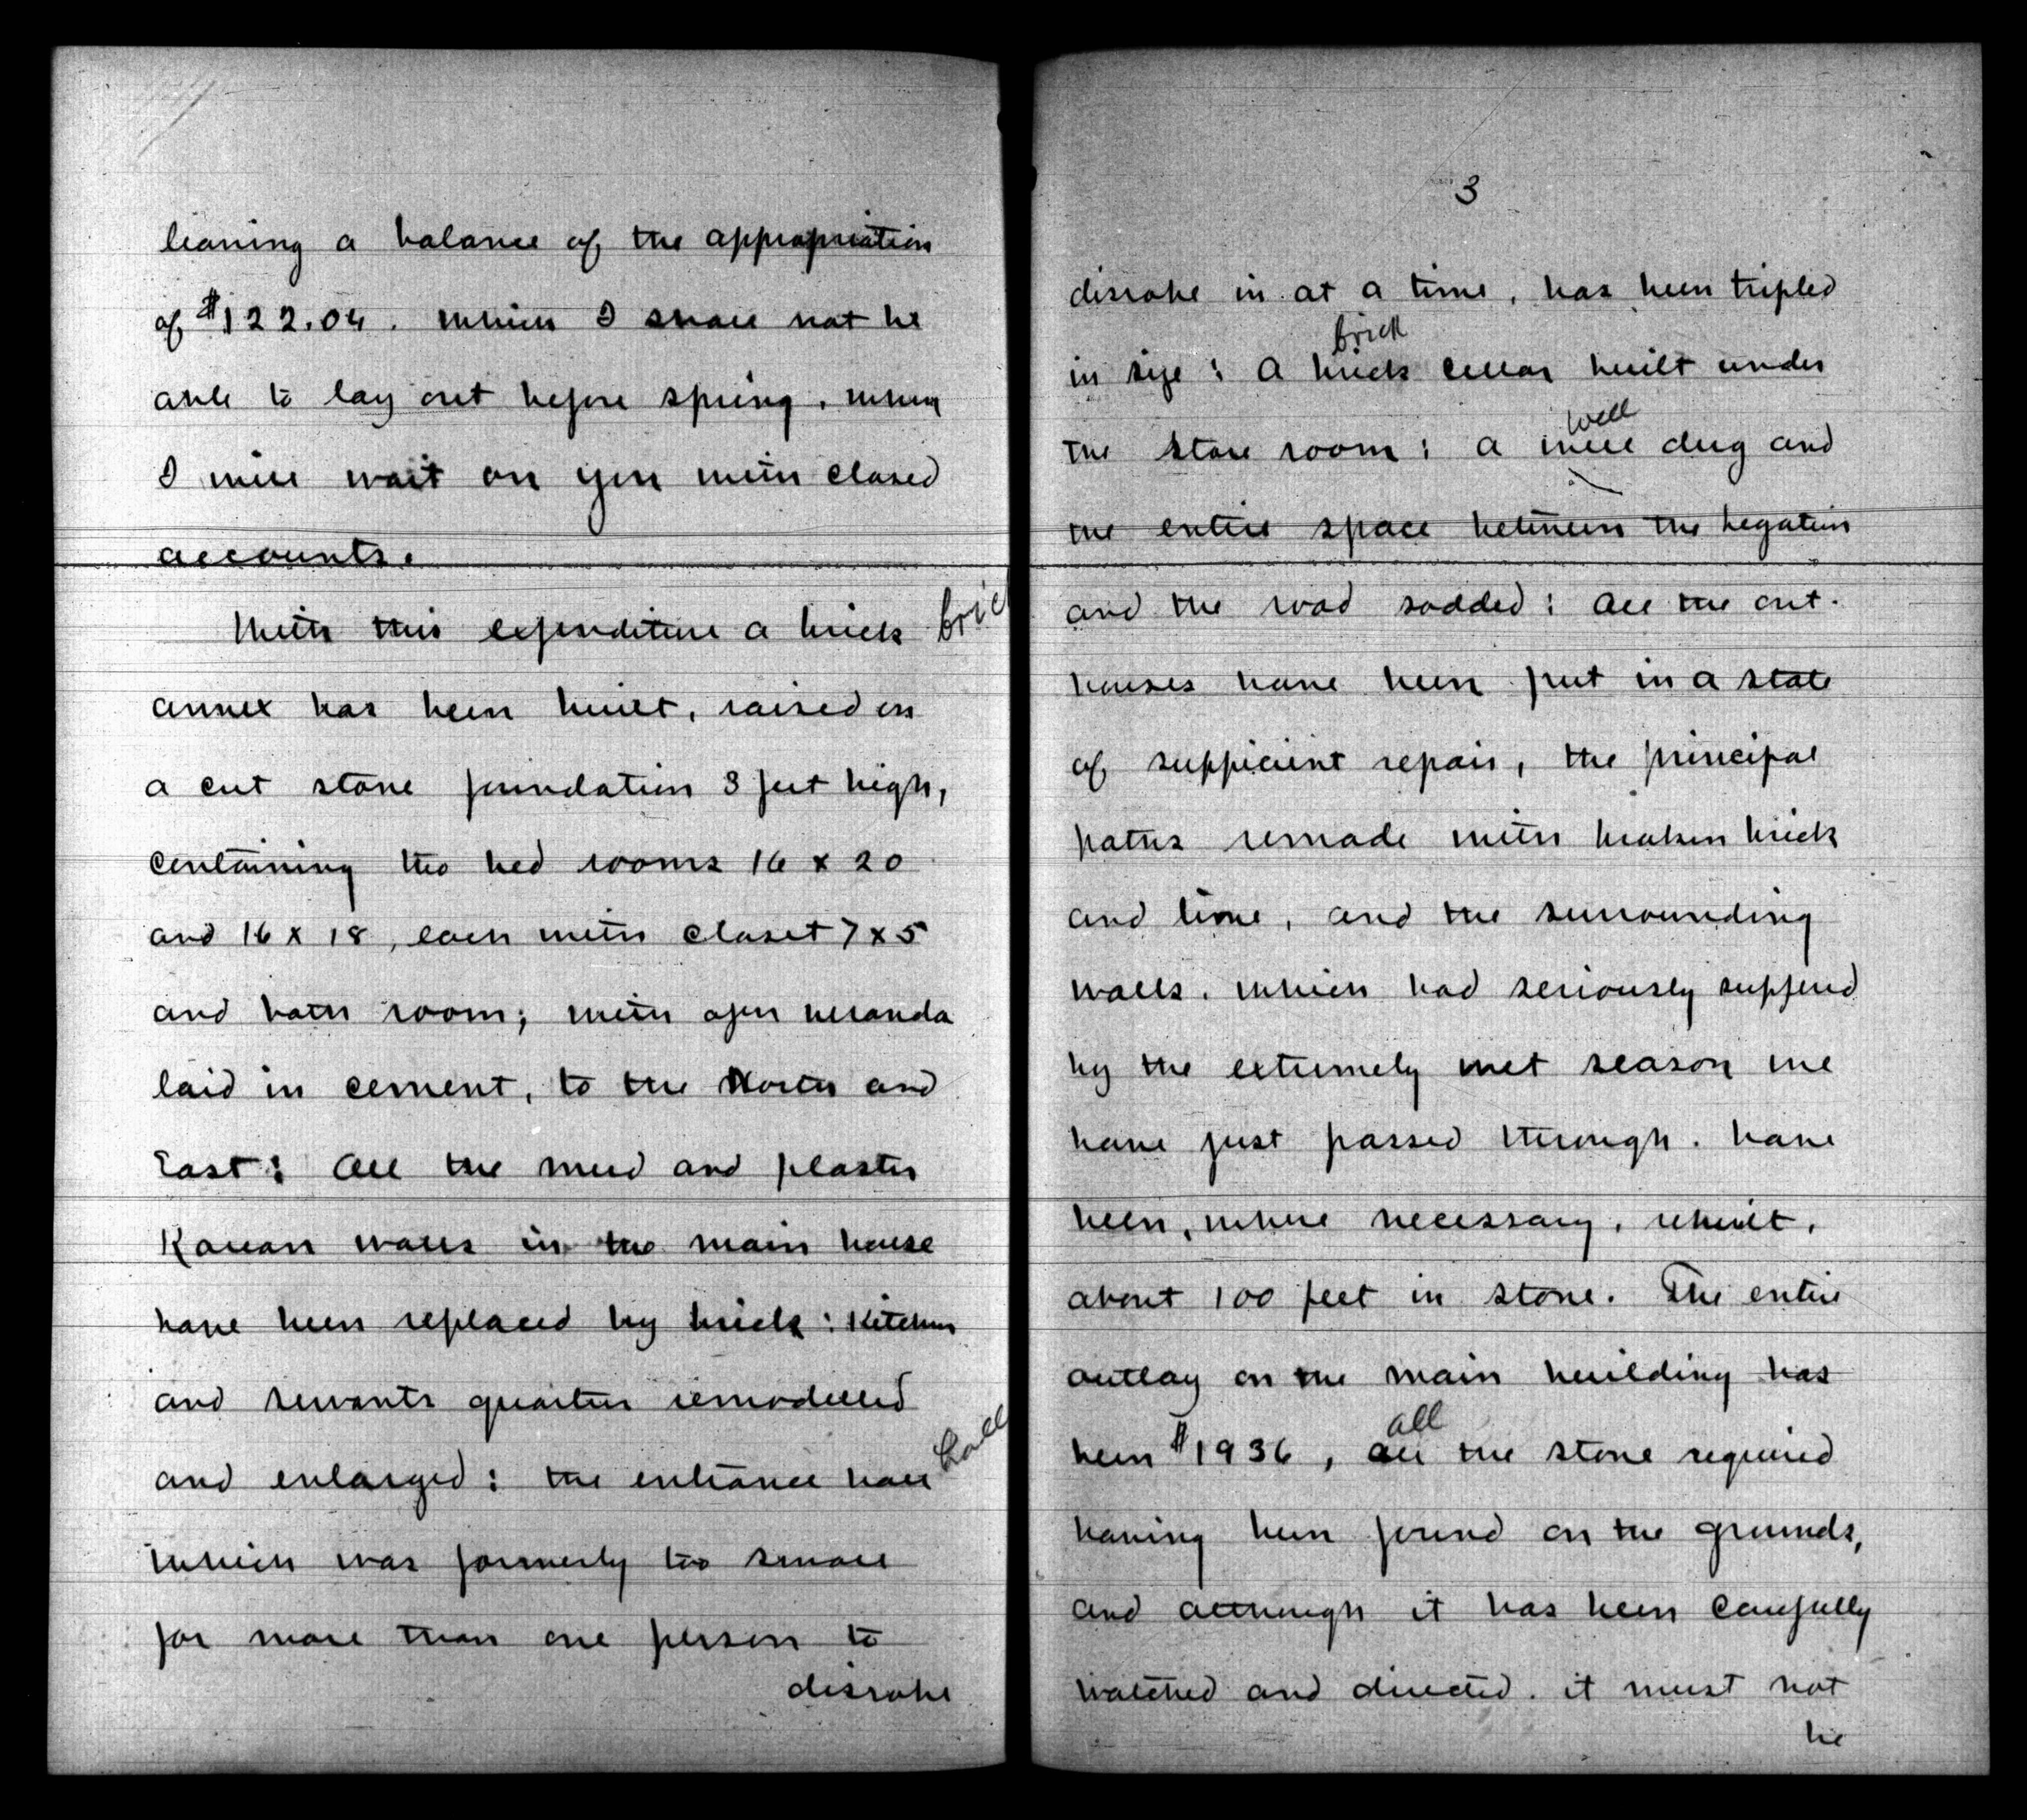 leaving a balance of the appropriation
of $122.04. which I shall not be
able to lay out before spring, when
I will wait on you with closed
accounts.
With this expenditure a brick bric
annex has been built, raised on
a cut stone foundation 3 feet high,
containing two bed rooms 16 x 20
and 16 x 18, each with closet 7 x 5
and bath room; with open veranda
laid in cement, to the North and
East: All the mud and plaster
Korean walls in the main house
have been replaced by brick: Kitchen
and servants quarters remodelled
and enlarged: the entrance hall hall
which was formerly too small
for more than one person to
disrobe
3
disrobe in at a time, has been tripled
brick
in size: A brick cellar built under
well
the store room: a well dug and
the entire space between the Legation
and the road sodded: All the out-
houses have been put in a state
of sufficient repair, the principal
paths remade with broken brick
and lime, and the surrounding
walls. which had seriously suffered
by the extremely wet season we
have just passed through. have
been, where necessary, rebuilt,
about 100 feet in stone. The entire
outlay on the main building has
all
been $1936, all the stone required
having been found on the grounds,
and although it has been carefully
watched and directed. it must not
be